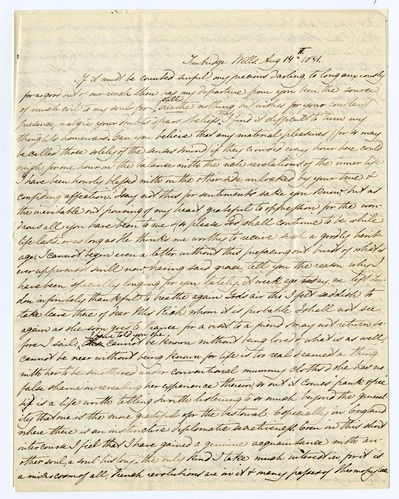 Tunbridge Wells Aug 14th 1851.
If it must be counted sinful my precious darling to long anxiously
for a good out of our reach then has my departure from you been the source
of much evil to my soul for I still breathe nothing but wishes for your constant
presence,
thoughts homeward. Can you believe that any material pleasures (for so may
be called those solely of the senses & mind) if they crowded every hour here could
weigh from hour in the balance with the real revelations of the inner life
I have been hourly blessed with on the other side unlocked by your true &
confiding affection. I say not this for sentiment's sake you know but as
the inevitable out pouring of my heart grateful to oppression for the won-
drous all you have been to me & so please God, shall continue to be while
life lasts or as long as he thinks me worthy to receive such a goodly herit-
age. I cannot begin even a letter without this prefacing out burst of what's
ever uppermost & will now having said grace tell you the reason when I
have been especially longing for you lately. A week ago we left Lon-
don infinitely thankful to breathe again God's air tho' I felt sad to
take leave there of dear Mrs Rich whom it is probable I shall not see
again as she goes to France for a visit to a friend & may not return be-
fore I sail. She cannot be known without being loved & what is as well,
cannot be near without being known for life is too real & earnest a thing
with her to be smothered under conventional mummy cloths & she has no
false shame in revealing her experience therein, so out it comes frank & free
if is a life worth telling & worth listening to so much beyond the general-
ity that me is the more grateful for the bestowal. Especially in England
where there is an instinctive diplomatic secretiveness. Even in this short
intercourse I feel that I have gained a genuine acquaintance with an-
other soul, a such kind I take much interest in for it is
a microcosm of all, French revolutions are in it & many passes of Thermopylae